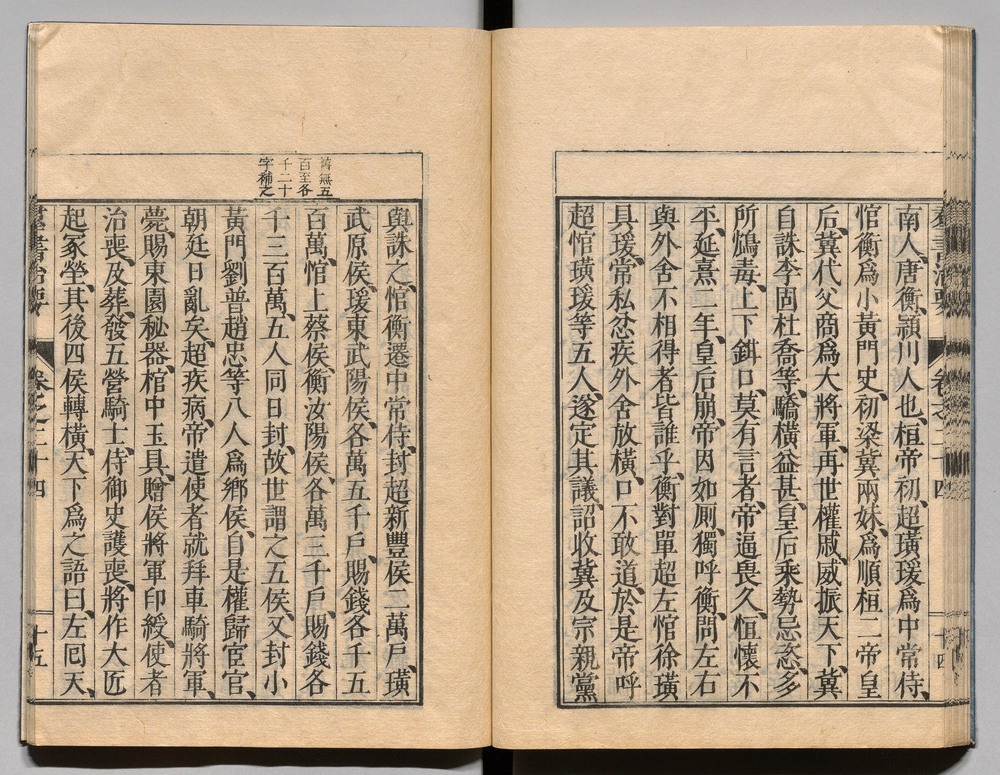 南人、唐衡、潁川人也、桓帝初、超璜瑗爲中常侍、
悺衡爲小黃門史、初梁冀兩妹、爲順桓二帝皇
后、冀代父商爲大將軍、再世權戚、威振天下、冀
自誅李固杜喬等、驕橫益甚、皇后乘勢忌恣、多
所鴆毒、上下鉗口、莫有言者、帝逼畏久、恒懷不
平、延熹二年、皇后崩、帝因如厠、獨呼衡、問左右
與外舍不相得者皆誰乎、衡對單超左悺徐璜
具瑗、常私忿疾外舍放橫、口不敢道、於是帝呼
超悺璜瑗等五人、遂定其議、詔收冀及宗親黨
卷之二十四
十四
舊無五
百至各
千二十
字補之
與誅之、悺衡遷中常侍、封超新豐侯二萬戶、璜
武原侯、瑗東武陽侯、各萬五千戶、賜錢各千五
百萬、悺上蔡侯、衡汝陽侯、各萬三千戶、賜錢各
千三百萬、五人同日封、故世謂之五侯、又封小
黃門劉普趙忠等八人爲鄉侯、自是權歸宦官、
朝廷日亂矣、超疾病、帝遣使者就拜車騎將軍、
薨、賜東園秘器、棺中玉具、贈侯將軍印綬、使者
治喪、及葬、發五營騎士、侍御史護喪、將作大匠
起冢塋、其後四侯轉橫、天下爲之語曰、左囘天、
羣書治要
卷之二十四
十五